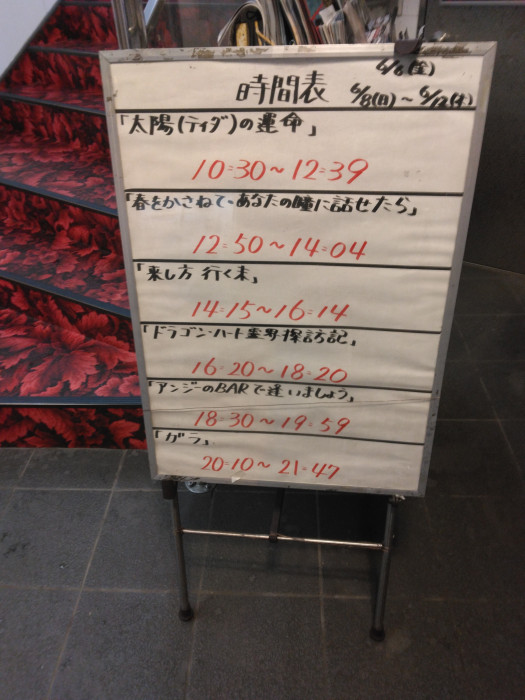 6/6(金)
時間表 6/8(日)~6/12(木)
「太陽(ティダ)の運命」
10:30~12:39
「春をかさねて・あなたの瞳に話せたら」
12:50~14:04
「来し方 行く末」
14:15~16:14
「ドラゴン・ハート霊界探訪記」
16:20~18:20
「アンジーのBARで逢いましょう」
18:30~19:59
「ガラ」
20:10~21:47